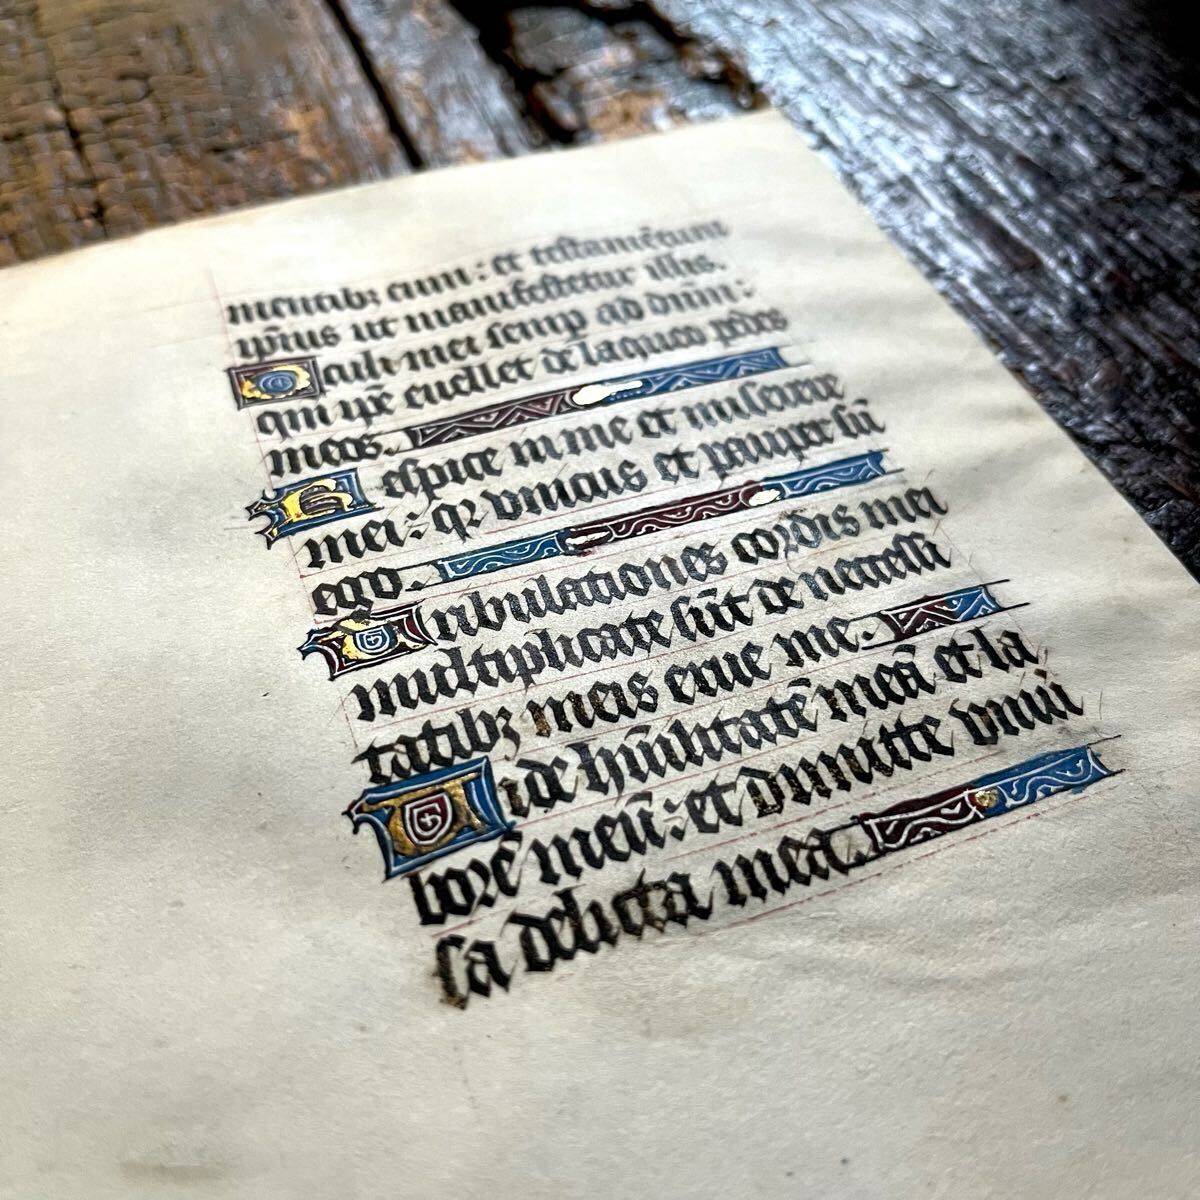 mentib⁊ eum : et testamētum
ip̄ius ut manifestetur illis.
Oculi mei semp ad dn̄m :
qm̄ ip̄e euellet de laqueo pedes
meos.
Respice in me et miserere
mei : qꝛ vnicus et pauper sū
ego.
Tribulationes cordis mei
multiplicate sūt de necessi
tatib⁊ meis erue me.
Vide hūilitatē meā et la
borē meū : et dimitte vniū
sa delicta mea.